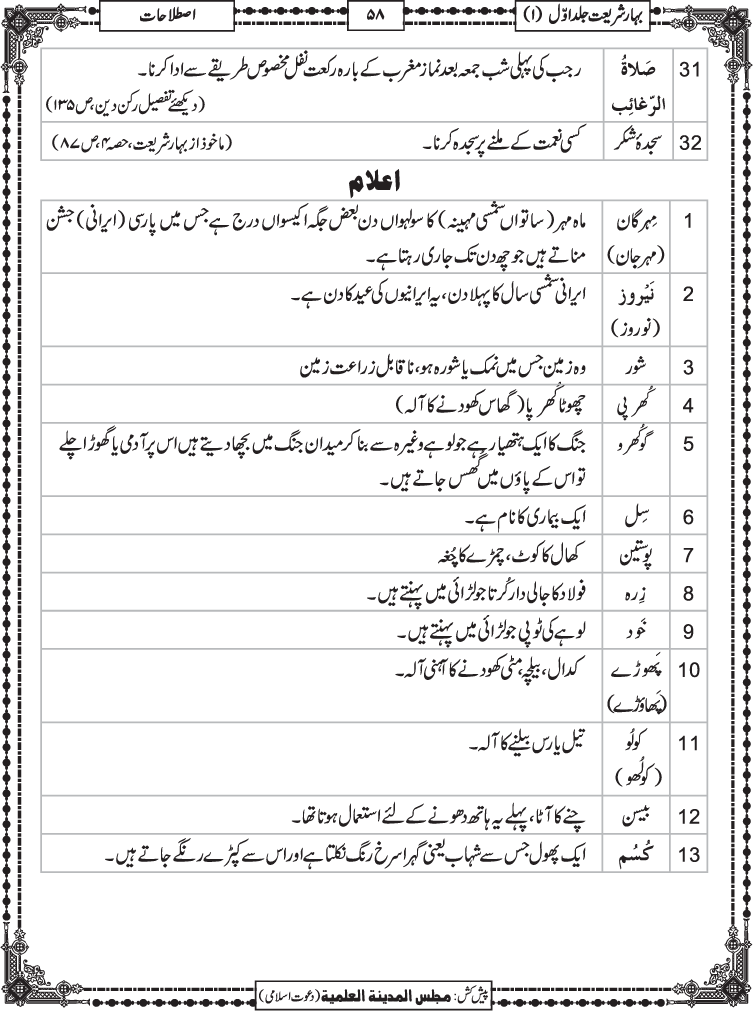 بہارِ شریعت جلد اوّل (۱)
۵۸
اصطلاحات
31 صَلاۃُ رجب کی پہلی شب جمعہ بعد نماز مغرب کے بارہ رکعت نفل مخصوص طریقے سے ادا کرنا۔
الرّغائِب (دیکھئے تفصیل رکن دین، ص ۱۳۵)
32 سجدۂ شکر کسی نعمت کے ملنے پر سجدہ کرنا۔ (ماخوذ از بہار شریعت، حصہ ۴، ص ۸۷)
اعلام
1 مِہرگان ماہ مہر (ساتواں شمسی مہینہ) کا سولہواں دن بعض جگہ اکیسواں درج ہے جس میں پارسی (ایرانی) جشن
(مہرجان) مناتے ہیں جو چھ دن تک جاری رہتا ہے۔
2 نَیْروز ایرانی شمسی سال کا پہلا دن، یہ ایرانیوں کی عید کا دن ہے۔
(نوروز)
3 شور وہ زمین جس میں نمک یا شورہ ہو، ناقابل زراعت زمین
4 کُھرپی چھوٹا کُھرپا (گھاس کھودنے کا آلہ)
5 گوکُھرو جنگ کا ایک ہتھیار ہے جو لوہے وغیرہ سے بنا کر میدان جنگ میں بچھا دیتے ہیں اس پر آدمی یا گھوڑا چلے
تو اس کے پاؤں میں گھس جاتے ہیں۔
6 سِل ایک بیماری کا نام ہے۔
7 پوستین کھال کا کوٹ، چمڑے کا چُغہ
8 زِرہ فولاد کا جالی دار کُرتا جو لڑائی میں پہنتے ہیں۔
9 خَود لوہے کی ٹوپی جو لڑائی میں پہنتے ہیں۔
10 پَھوڑے کدال، بیلچہ، مٹی کھودنے کا آہنی آلہ۔
(پَھاوَڑے)
11 کولُو تیل یا رس بیلنے کا آلہ۔
(کولُھو)
12 بیسن چنے کا آٹا، پہلے یہ ہاتھ دھونے کے لئے استعمال ہوتا تھا۔
13 کُسُم ایک پھول جس سے شہاب یعنی گہرا سرخ رنگ نکلتا ہے اور اس سے کپڑے رنگے جاتے ہیں۔
پیش کش: مجلس المدینة العلمیة (دعوت اسلامی)